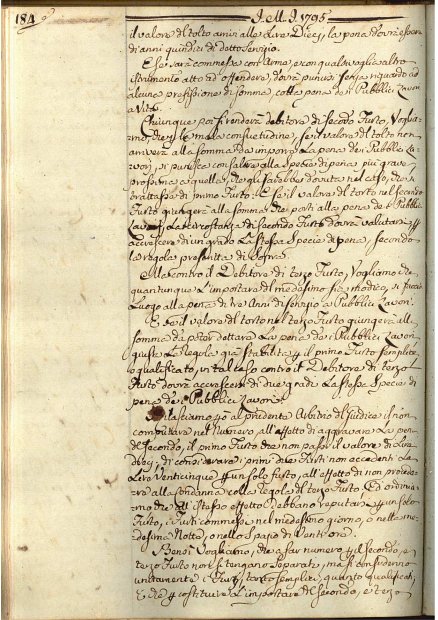 184 I. M. I. 1795
il valore del tolto arrivi alle Lire Dieci, la pena dovrà essere
di anni quindici di detto servizio.
E se sarà commesso con Arme, e con qualsivoglia altro
istrumento atto ad offendere, dovrà punirsi senza riguardo ad
alcuna prefissione di somma, colla pena de i Pubblici Lavori
a Vita.
Chiunque poi si renderà debitore di secondo Furto, Voglia-
mo, che la mala consuetudine, se il valore del tolto non
arriverà alla somma da imporre la pena de i Pubblici La-
vori, si punisca con salire alla Specie di pena più grave
prossima a quella, che gli sarebbe dovuta nel caso, che si
trattasse di primo Furto: E se il valore del tolto nel secondo
Furto giungerà alla somma, che porti alla pena de i Pubblici
Lavori, la circostanza di secondo Furto dovrà valutarsi per
accrescere di un grado la stessa Specie di pena, secondo
la regola prescritta di sopra.
Ma contro il Debitore di terzo Furto, Vogliamo, che
quantunque l'importare del medesimo sia modico, si faccia
Luogo alla pena di tre Anni di servizio a i Pubblici Lavori.
E se il valore del tolto nel terzo Furto giungerà alla
somma da poter dettare la pena de i Pubblici Lavori
giusta le regole già stabilite per il primo Furto semplice,
o qualificato, in tal caso contro il Debitore di terzo
Furto dovrà accrescersi di due gradi la stessa Specie di
pena de i Pubblici Lavori.
Rilasciamo però al prudente Arbitrio del Giudice il non
computare nel numero all'effetto di aggravare la pena
del secondo, il primo Furto che non passi il valore di Lire
dieci, di considerare i primi due Furti non eccedenti la
Lire Venticinque per un solo furto, all'effetto di non proce-
dere alla condanna colla regola del terzo Furto; Ed ordinia-
mo che all'istesso effetto debbano reputarsi per un solo
Furto, i Furti commessi nel medesimo giorno, o nella me-
desima Notte, o nello spazio di Vent'ore.
Bensì Vogliamo, che a far numero per il secondo, e
terzo Furto non si tengano separati, ma si considerino
unitamente i Furti, tanto semplici, quanto qualificati,
E che per costituire l'importare del secondo, e terzo